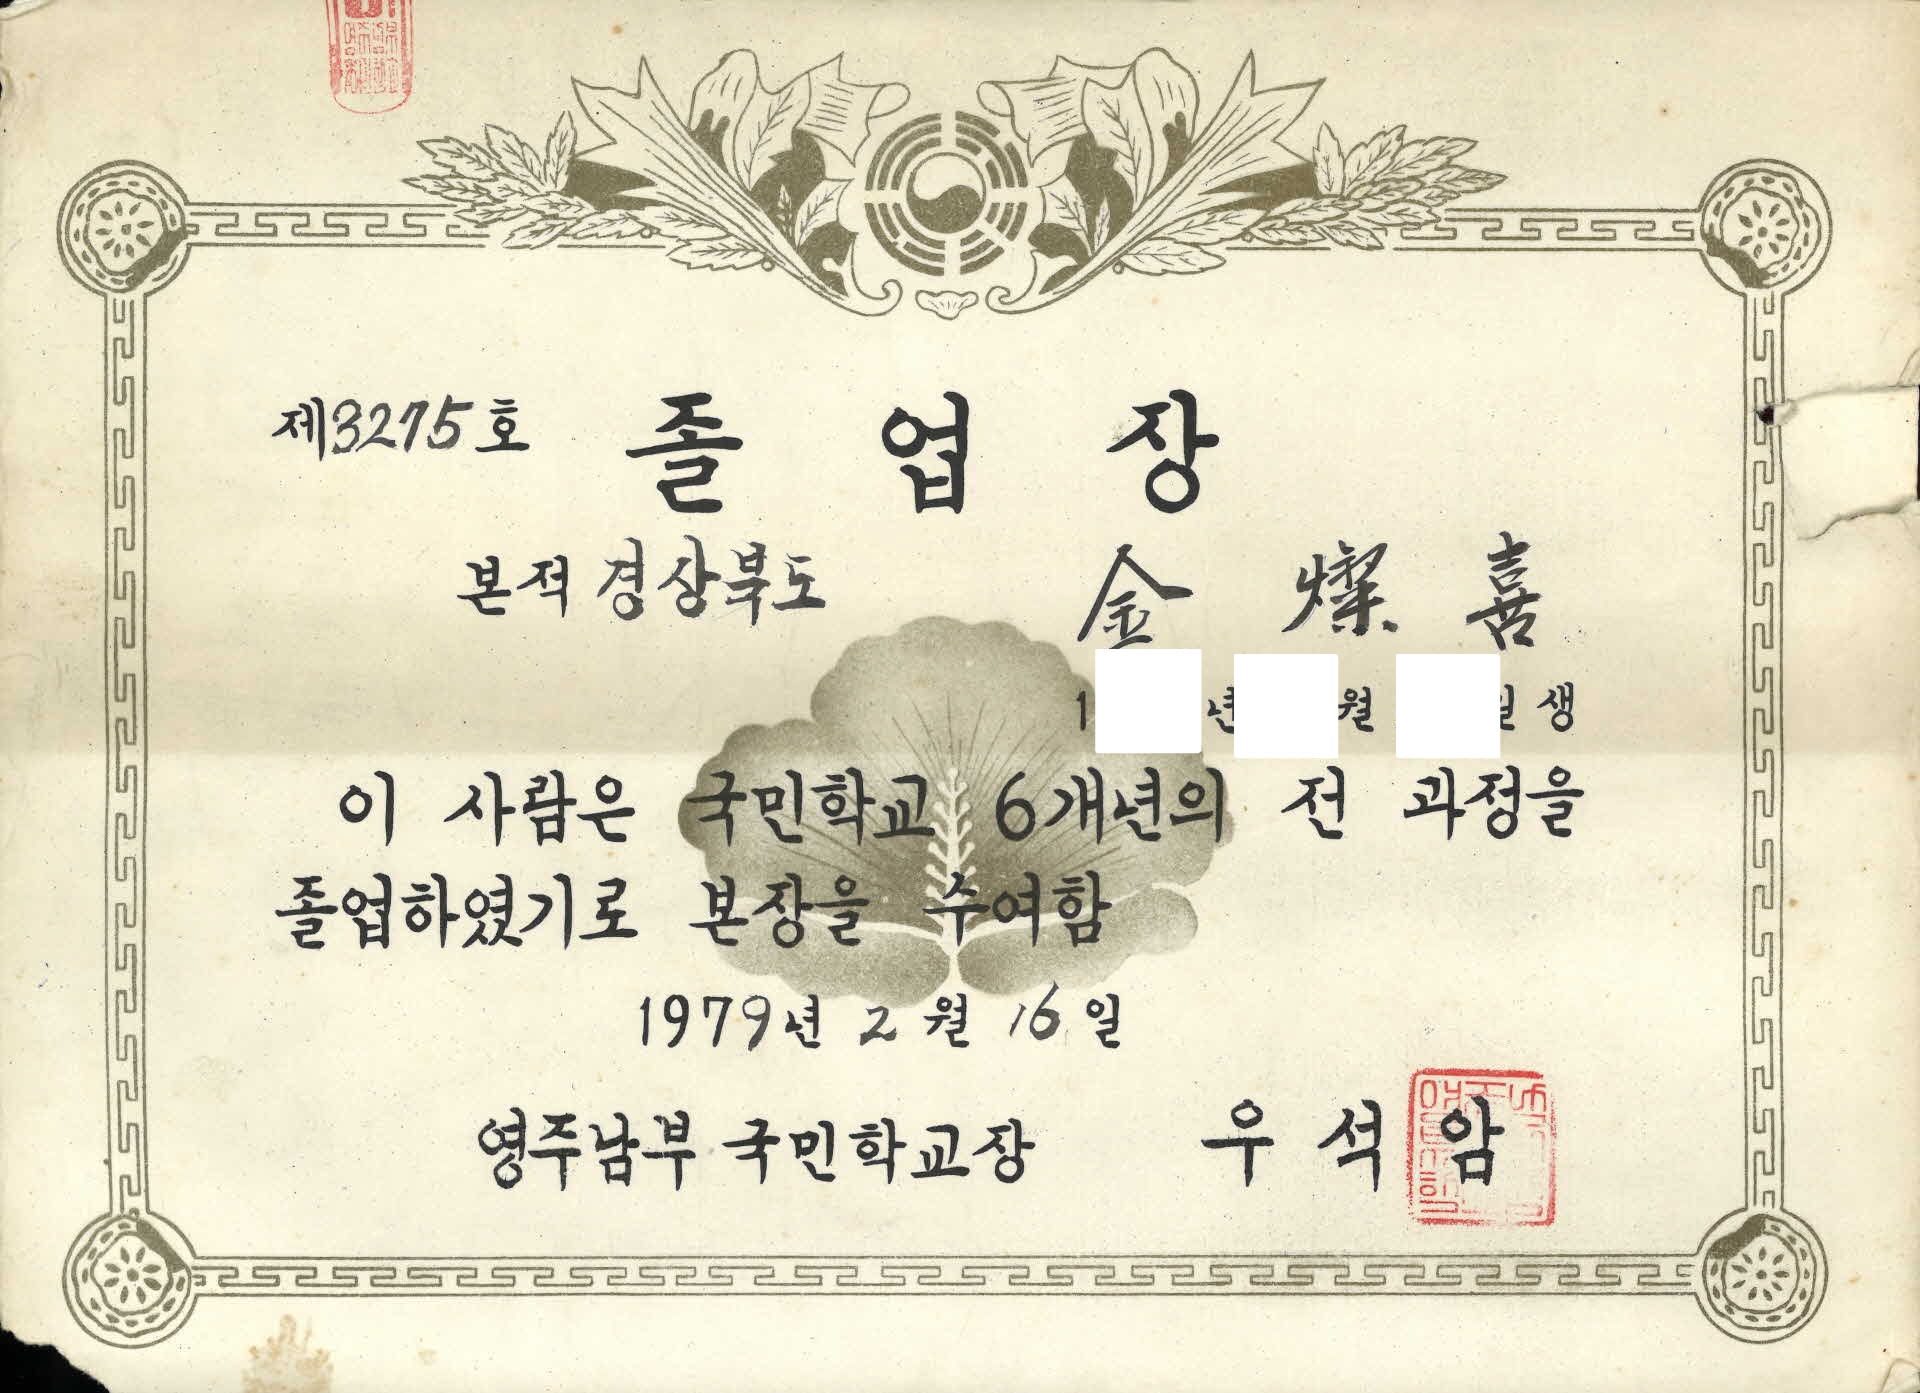 제3275호 졸업장
본적 경상북도 金燦喜
1 년 월 일생
이 사람은 국민학교 6개년의 전 과정을
졸업하였기로 본장을 수여함
1979년 2월 16일
영주남부국민학교장 우석암